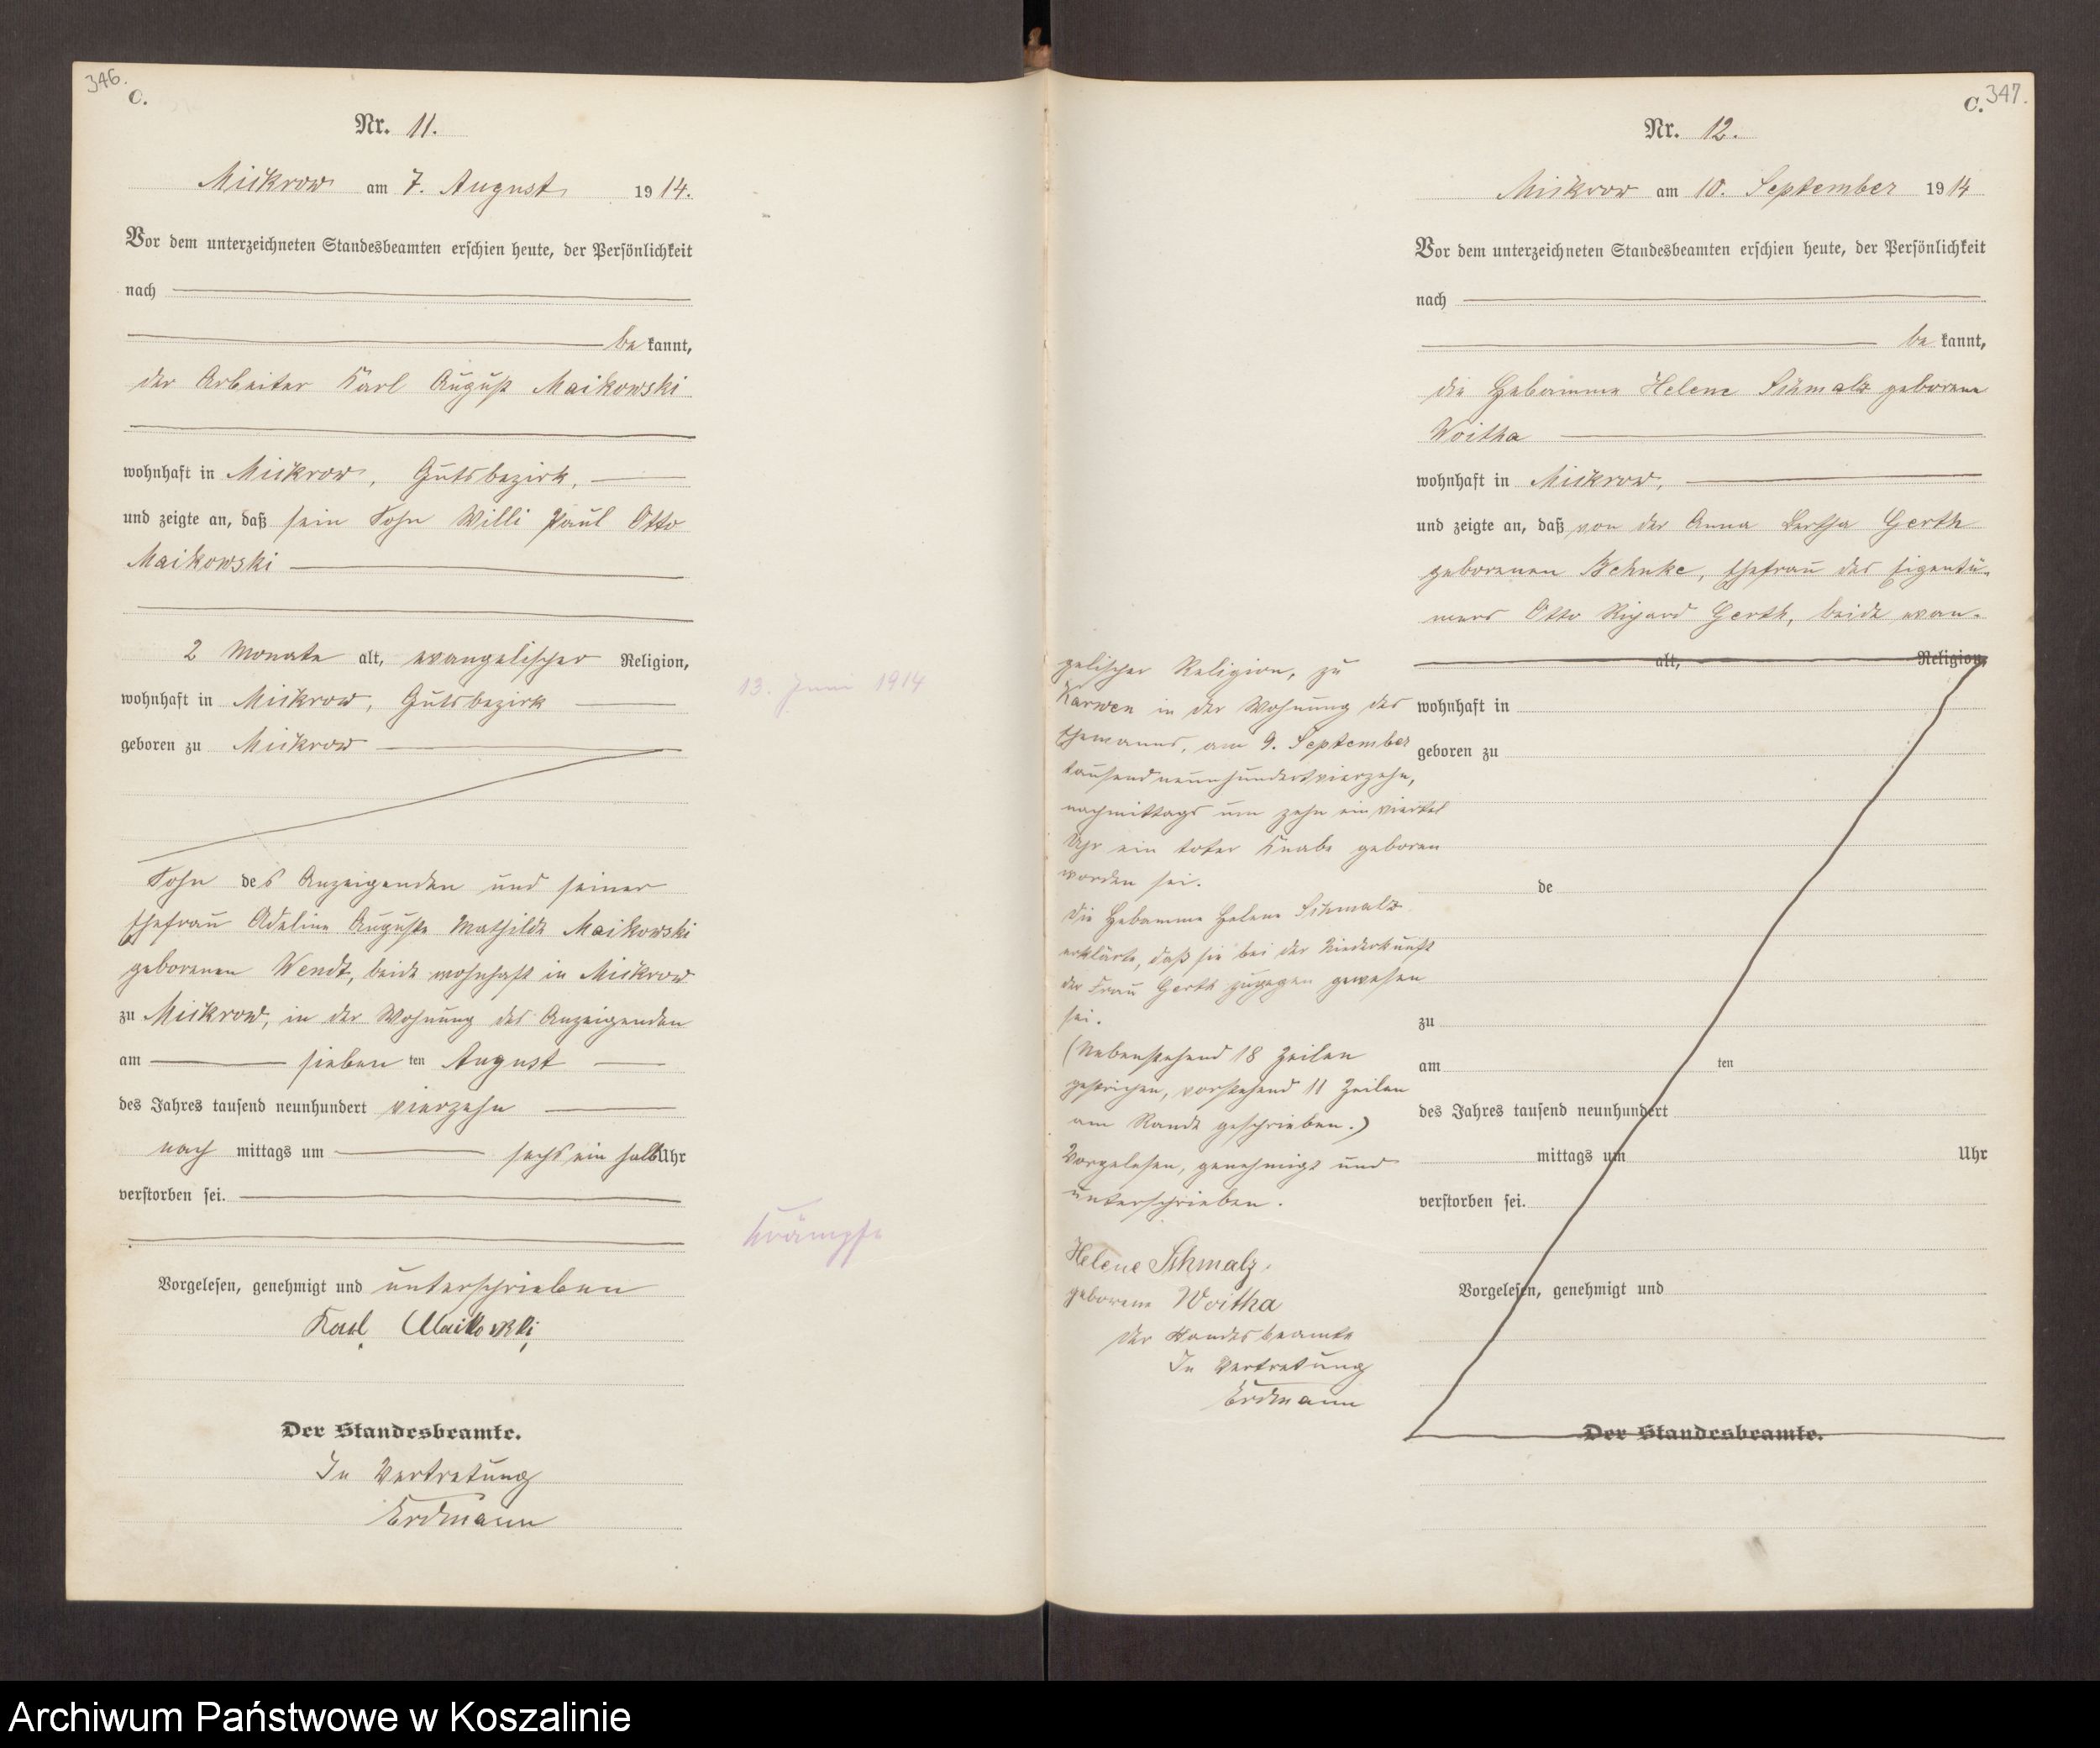 346.
C.
Nr. 11.
Mickrow am 7. August 1914.
Vor dem unterzeichneten Standesbeamten erschien heute, der Persönlichkeit
nach
bekannt,
der Arbeiter Karl August Maikowski
wohnhaft in Mickrow, Gutsbezirk,
und zeigte an, daß sein Sohn Willi Paul Otto
Maikowski
2 Monate alt, evangelischer Religion,
wohnhaft in Mickrow, Gutsbezirk
geboren zu Mickrow
Sohn des Anzeigenden und seiner
Ehefrau Adeline Auguste Mathilde Maikowski
geborenen Wendt, beide wohnhaft in Mickrow
zu Mickrow, in der Wohnung des Anzeigenden
am sieben ten August
des Jahres tausend neunhundert vierzehn
nach mittags um sechs ein halb Uhr
verstorben sei.
Vorgelesen, genehmigt und unterschrieben
Karl Maikowski
Der Standesbeamte.
In Vertretung
Erdmann
13. Juni 1914
Krämpfe
C. 347.
Nr. 12.
Mickrow am 10. September 1914
Vor dem unterzeichneten Standesbeamten erschien heute, der Persönlichkeit
nach
bekannt,
die Hebamme Helene Schmalz geborene
Woitha
wohnhaft in Mickrow,
und zeigte an, daß von der Anna Bertha Gerth
geborenen Behnke, Ehefrau des Eigentü-
mers Otto Richard Gerth, beide evan-
alt, Religion,
wohnhaft in
geboren zu
de
zu
am ten
des Jahres tausend neunhundert
mittags um Uhr
verstorben sei.
Vorgelesen, genehmigt und
Der Standesbeamte.
gelischer Religion, zu
Karwen in der Wohnung des
Ehemanns, am 9. September
tausendneunhundertvierzehn,
nachmittags um zehn ein viertel
Uhr ein toter Knabe geboren
worden sei.
Die Hebamme Helene Schmalz
erklärte, daß sie bei der Niederkunft
der Frau Gerth zugegen gewesen
sei.
(Nebenstehend 18 Zeilen
gestrichen, vorstehend 11 Zeilen
am Rande geschrieben.)
Vorgelesen, genehmigt und
unterschrieben.
Helene Schmalz,
geborene Woitha
Der Standesbeamte
In Vertretung
Erdmann
Archiwum Państwowe w Koszalinie